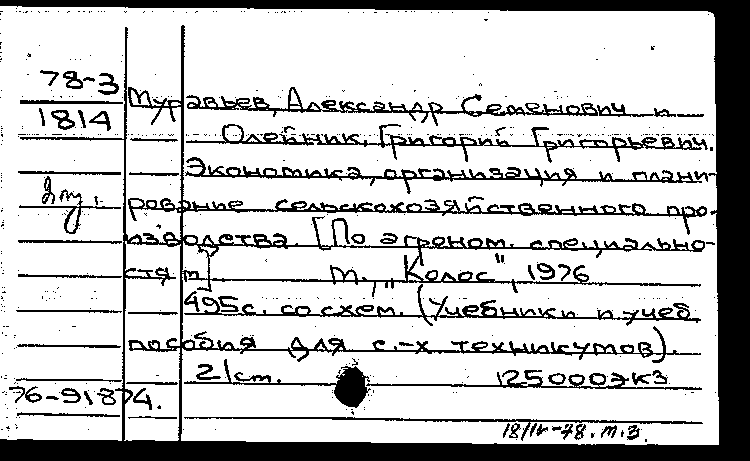 78-3
1814
Муравьев, Александр Семенович и
Олейник, Григорий Григорьевич.
Экономика, организация и плани-
рование сельскохозяйственного про-
изводства. [По агроном. специально-
стям] М., „Колос", 1976
495с. со схем. (Учебники и учеб.
пособия для с.-х техникумов).
21см. 125000экз
76-91874.
18/IV-78. м.з.